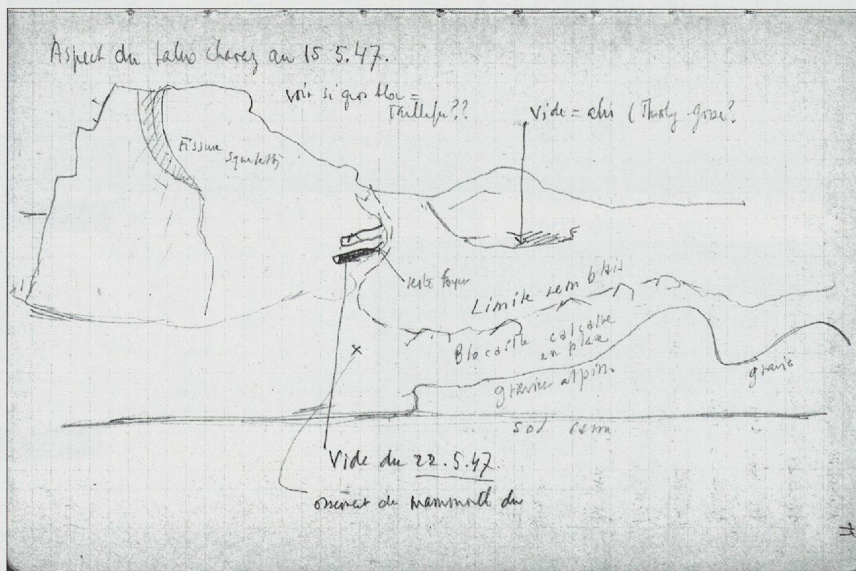 Aspect du talus Chavez au 15 5.47.
voir si gros bloc =
Vide = abri (
Fissure
reste foyer
Limite remblais
Blocaille calcaire
en place
gravier alpin.
gravier
sol
Vide du 22.5.47.
ossement de mammouth du